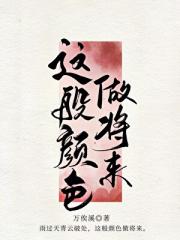 这般颜色
做将来
万俟溪◎著
雨过天青云破处，这般颜色做将来。